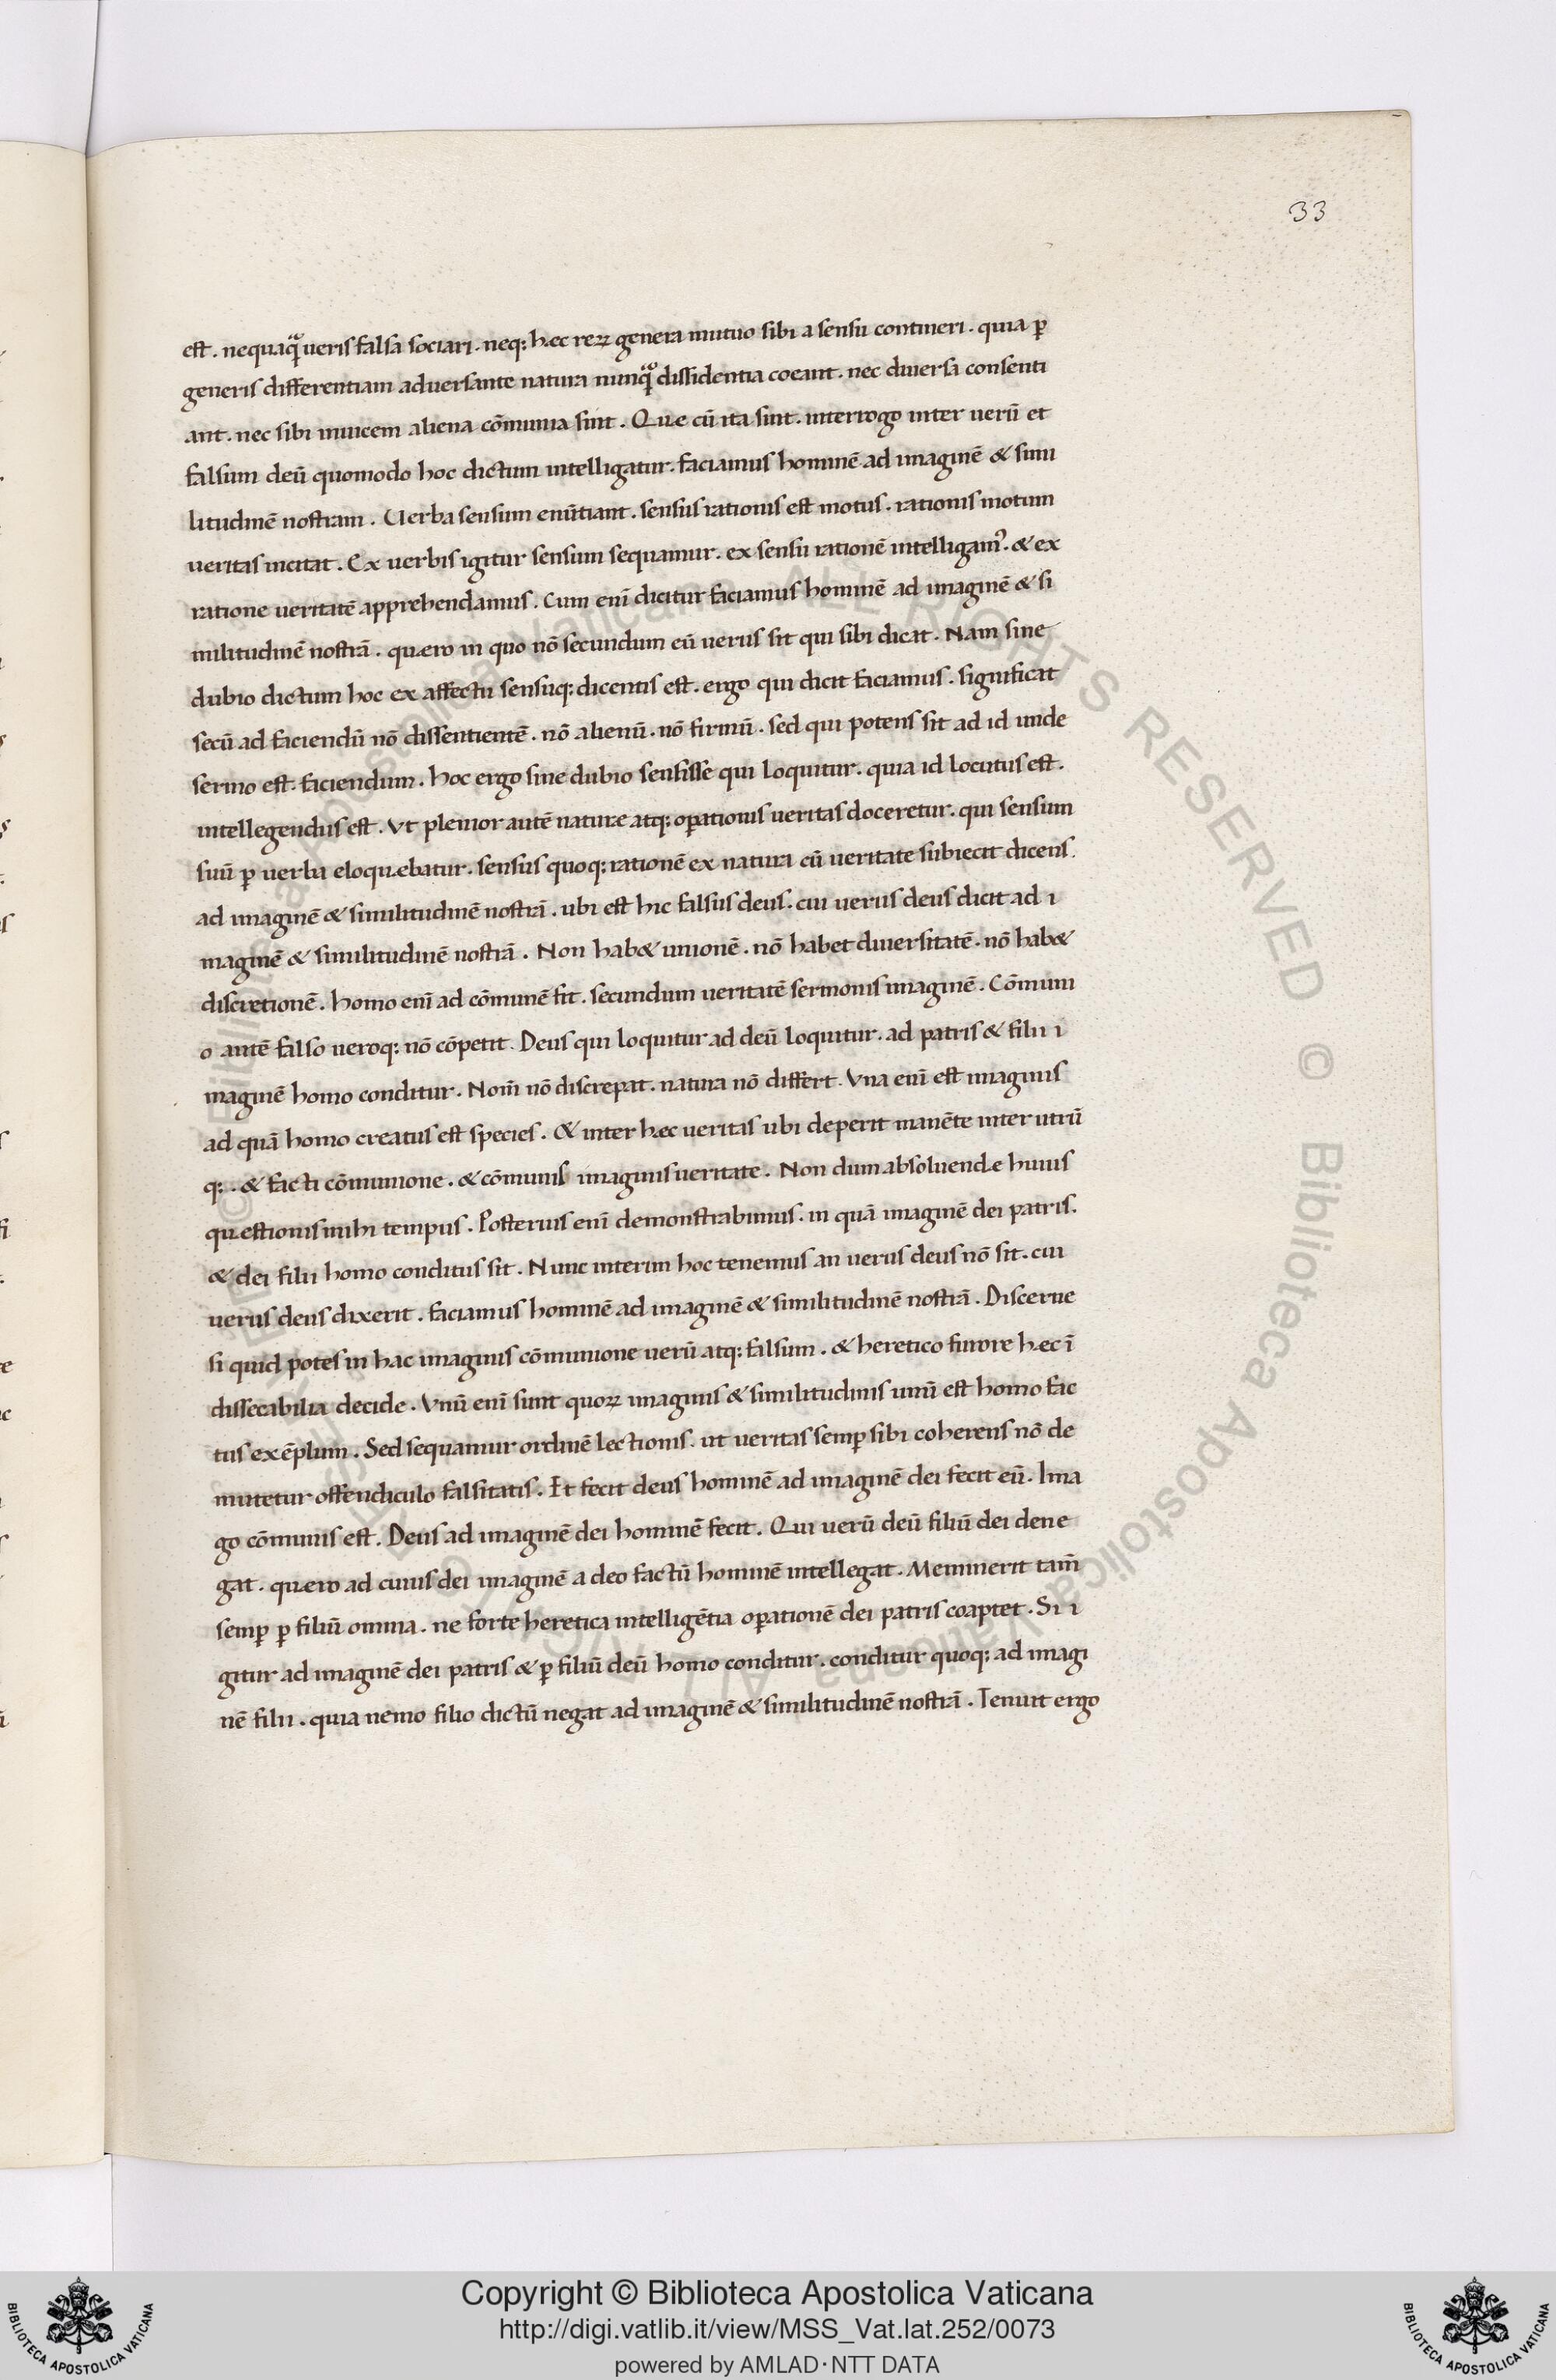 33
est. nequaꝗ̃ ueris falsa sociari. neq; hęc reꝝ genera mutuo sibi a sensu contineri. quia ꝑ
generis differentiam aduersante natura nunꝗ̃ dissidentia coeant. nec diuersa consenti
ant. nec sibi inuicem aliena cōmunia sint. Quę cū ita sint. interrogo inter uerū et
falsum deū quomodo hoc dictum intelligatur. faciamus hominē ad imaginē & simi
litudinē nostram. Uerba sensum enūtiant. sensus rationis est motus. rationis motum
ueritas incitat. Ex uerbis igitur sensum sequamur. ex sensu rationē intelligamꝰ. & ex
ratione ueritatē apprehendamus. Cum enī dicitur faciamus hominē ad imaginē & si
militudinē nostrā. quęro in quo nō secundum eū uerus sit qui sibi dicat. Nam sine
dubio dictum hoc ex affectu sensuq; dicentis est. ergo qui dicit faciamus. significat
secū ad faciendū nō dissentientē. nō alienū. nō firmū. sed qui potens sit ad id unde
sermo est. faciendum. hoc ergo sine dubio sensisse qui loquitur. quia id locutus est.
intellegendus est. Vt plenior autē naturę atq; oꝑationis ueritas doceretur. qui sensum
suū ꝑ uerba eloquębatur. sensus quoq; rationē ex natura cū ueritate subiecit dicens.
ad imaginē & similitudinē nostrā. ubi est hic falsus deus. cui uerus deus dicit ad i
maginē & similitudinē nostrā. Non hab& unionē. nō habet diuersitatē. nō hab&
discretionē. homo enī ad cōmunē fit. secundum ueritatē sermonis imaginē. Cōmuni
o autē falso ueroq; nō cōpetit. Deus qui loquitur ad deū loquitur. ad patris & filii i
maginē homo conditur. Nom̄ nō discrepat. natura nō differt. Vna enī est imaginis
ad quā homo creatus est species. & inter hęc ueritas ubi deperit manēte inter utrū
q;. & facti cōmunione. & cōmunis imaginis ueritate. Non dum absoluendę huius
quęstionis mihi tempus. Posterius enī demonstrabimus. in quā imaginē dei patris.
& dei filii homo conditus sit. Nunc interim hoc tenemus an uerus deus nō sit. cui
uerus deus dixerit. faciamus hominē ad imaginē & similitudinē nostrā. Discerne
si quid potes in hac imaginis cōmunione uerū atq; falsum. & heretico furore hęc ī
dissecabilia decide. Vnū enī sunt quoꝝ imaginis & similitudinis unū est homo fac
tus exēplum. Sed sequamur ordinē lectionis. ut ueritas semꝑ sibi coherens nō de
mutetur offendiculo falsitatis. Et fecit deus hominē ad imaginē dei fecit eū. Ima
go cōmunis est. Deus ad imaginē dei hominē fecit. Qui uerū deū filiū dei dene
gat. quęro ad cuius dei imaginē a deo factū hominē intellegat. Meminerit tam̄
semꝑ ꝑ filiū omnia. ne forte heretica intelligētia oꝑationē dei patris coaptet. Si i
gitur ad imaginē dei patris & ꝑ filiū deū homo conditur. conditur quoq; ad imagi
nē filii. quia nemo filio dictū negat ad imaginē & similitudinē nostrā. Tenuit ergo
Copyright © Biblioteca Apostolica Vaticana
http://digi.vatlib.it/view/MSS_Vat.lat.252/0073
powered by AMLAD·NTT DATA
BIBLIOTECA APOSTOLICA VATICANA
BIBLIOTECA APOSTOLICA VATICANA